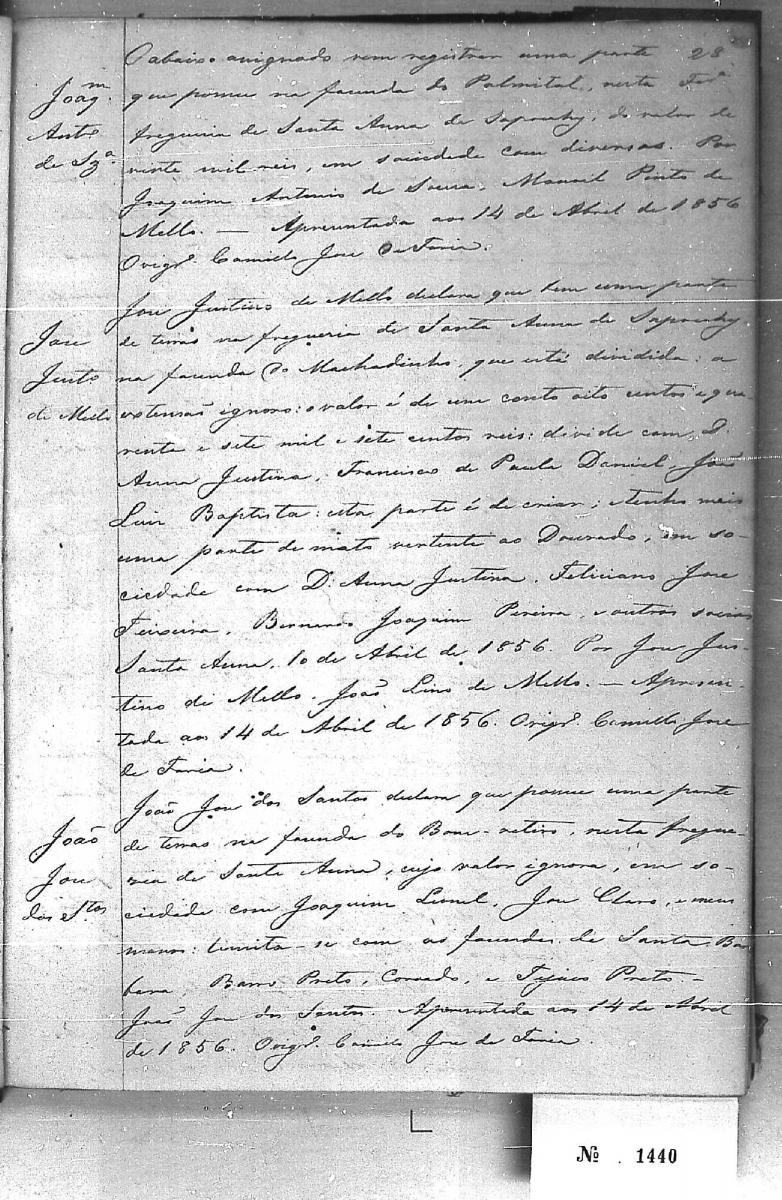 28
Joaq.m
Anto.
de Sza.
O abaixo assignado vem registrar uma parte
que possue na fazenda do Palmital, nesta
freguezia de Santa Anna de Sapucahy, do valor de
vinte mil reis, em sociedade com diversos. Por
Joaquim Antonio de Souza. Manoel Pinto de
Mello. — Apresentada aos 14 de Abril de 1856
O vigr.º Camillo Jose de Faria.
Jose
Justo
de Mello
Jose Justino de Mello declara que tem uma parte
de terras na freguezia de Santa Anna de Sapucahy
na fazenda do Machadinho, que está dividida: a
extensão ignoro: o valor é de um conto oito centos e qua
renta e sete mil e sete centos reis: divide com D.
Anna Justina, Francisco de Paula Daniel, José
Luis Baptista: esta parte é de criar; e tenho mais
uma parte de mato vertente ao Dourado, em so-
ciedade com D. Anna Justina, Feliciano Jose
Teixeira, Bernardo Joaquim Pereira, e outros socios
Santa Anna, 10 de Abril de 1856. Por Jose Jus-
tino de Mello. João Lino de Mello. — Apresen-
tada aos 14 de Abril de 1856. O vigr.º Camillo Jose
de Faria.
João
Jose
dos Stos
João Jose dos Santos, declara que possue uma parte
de terras na fazenda do Bom-retiro, nesta fregue-
zia de Santa Anna, cujo valor ignora, em so-
ciedade com Joaquim Leonel, Jose Claro, e meus
manos: limita-se com as fazendas de Santa Bar
bara, Barro Preto, Coroado, e Tijuco Preto. —
João Jose dos Santos. Apresentada aos 14 de Abril
de 1856. O vigr.º Camillo Jose de Faria.
Nº . 1440